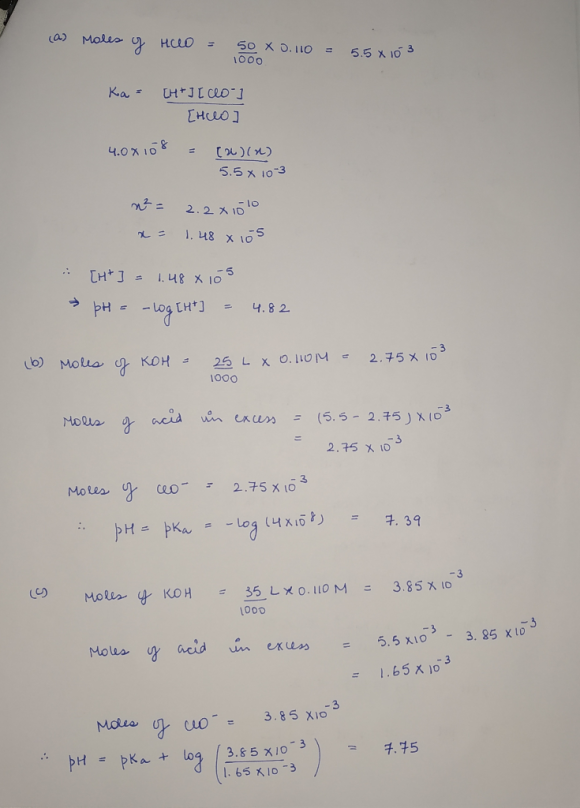 (a) Moles of HClO = 50/1000 × 0.110 = 5.5 × 10⁻³
Ka = [H⁺][ClO⁻]/[HClO]
4.0 × 10⁻⁸ = [x)(x)/5.5 × 10⁻³
x² = 2.2 × 10⁻¹⁰
x = 1.48 × 10⁻⁵
∴ [H⁺] = 1.48 × 10⁻⁵
→ pH = -log[H⁺] = 4.82
(b) Moles of KOH = 25/1000 L × 0.110M = 2.75 × 10⁻³
Moles of acid in excess = (5.5 - 2.75) × 10⁻³
= 2.75 × 10⁻³
Moles of ClO⁻ = 2.75 × 10⁻³
∴ pH = pKa = -log(4×10⁻⁸) = 7.39
(c) Moles of KOH = 35/1000 L × 0.110M = 3.85 × 10⁻³
Moles of acid in excess = 5.5 × 10⁻³ - 3.85 × 10⁻³
= 1.65 × 10⁻³
Moles of ClO⁻ = 3.85 × 10⁻³
∴ pH = pKa + log (3.85 × 10⁻³/1.65 × 10⁻³) = 7.75